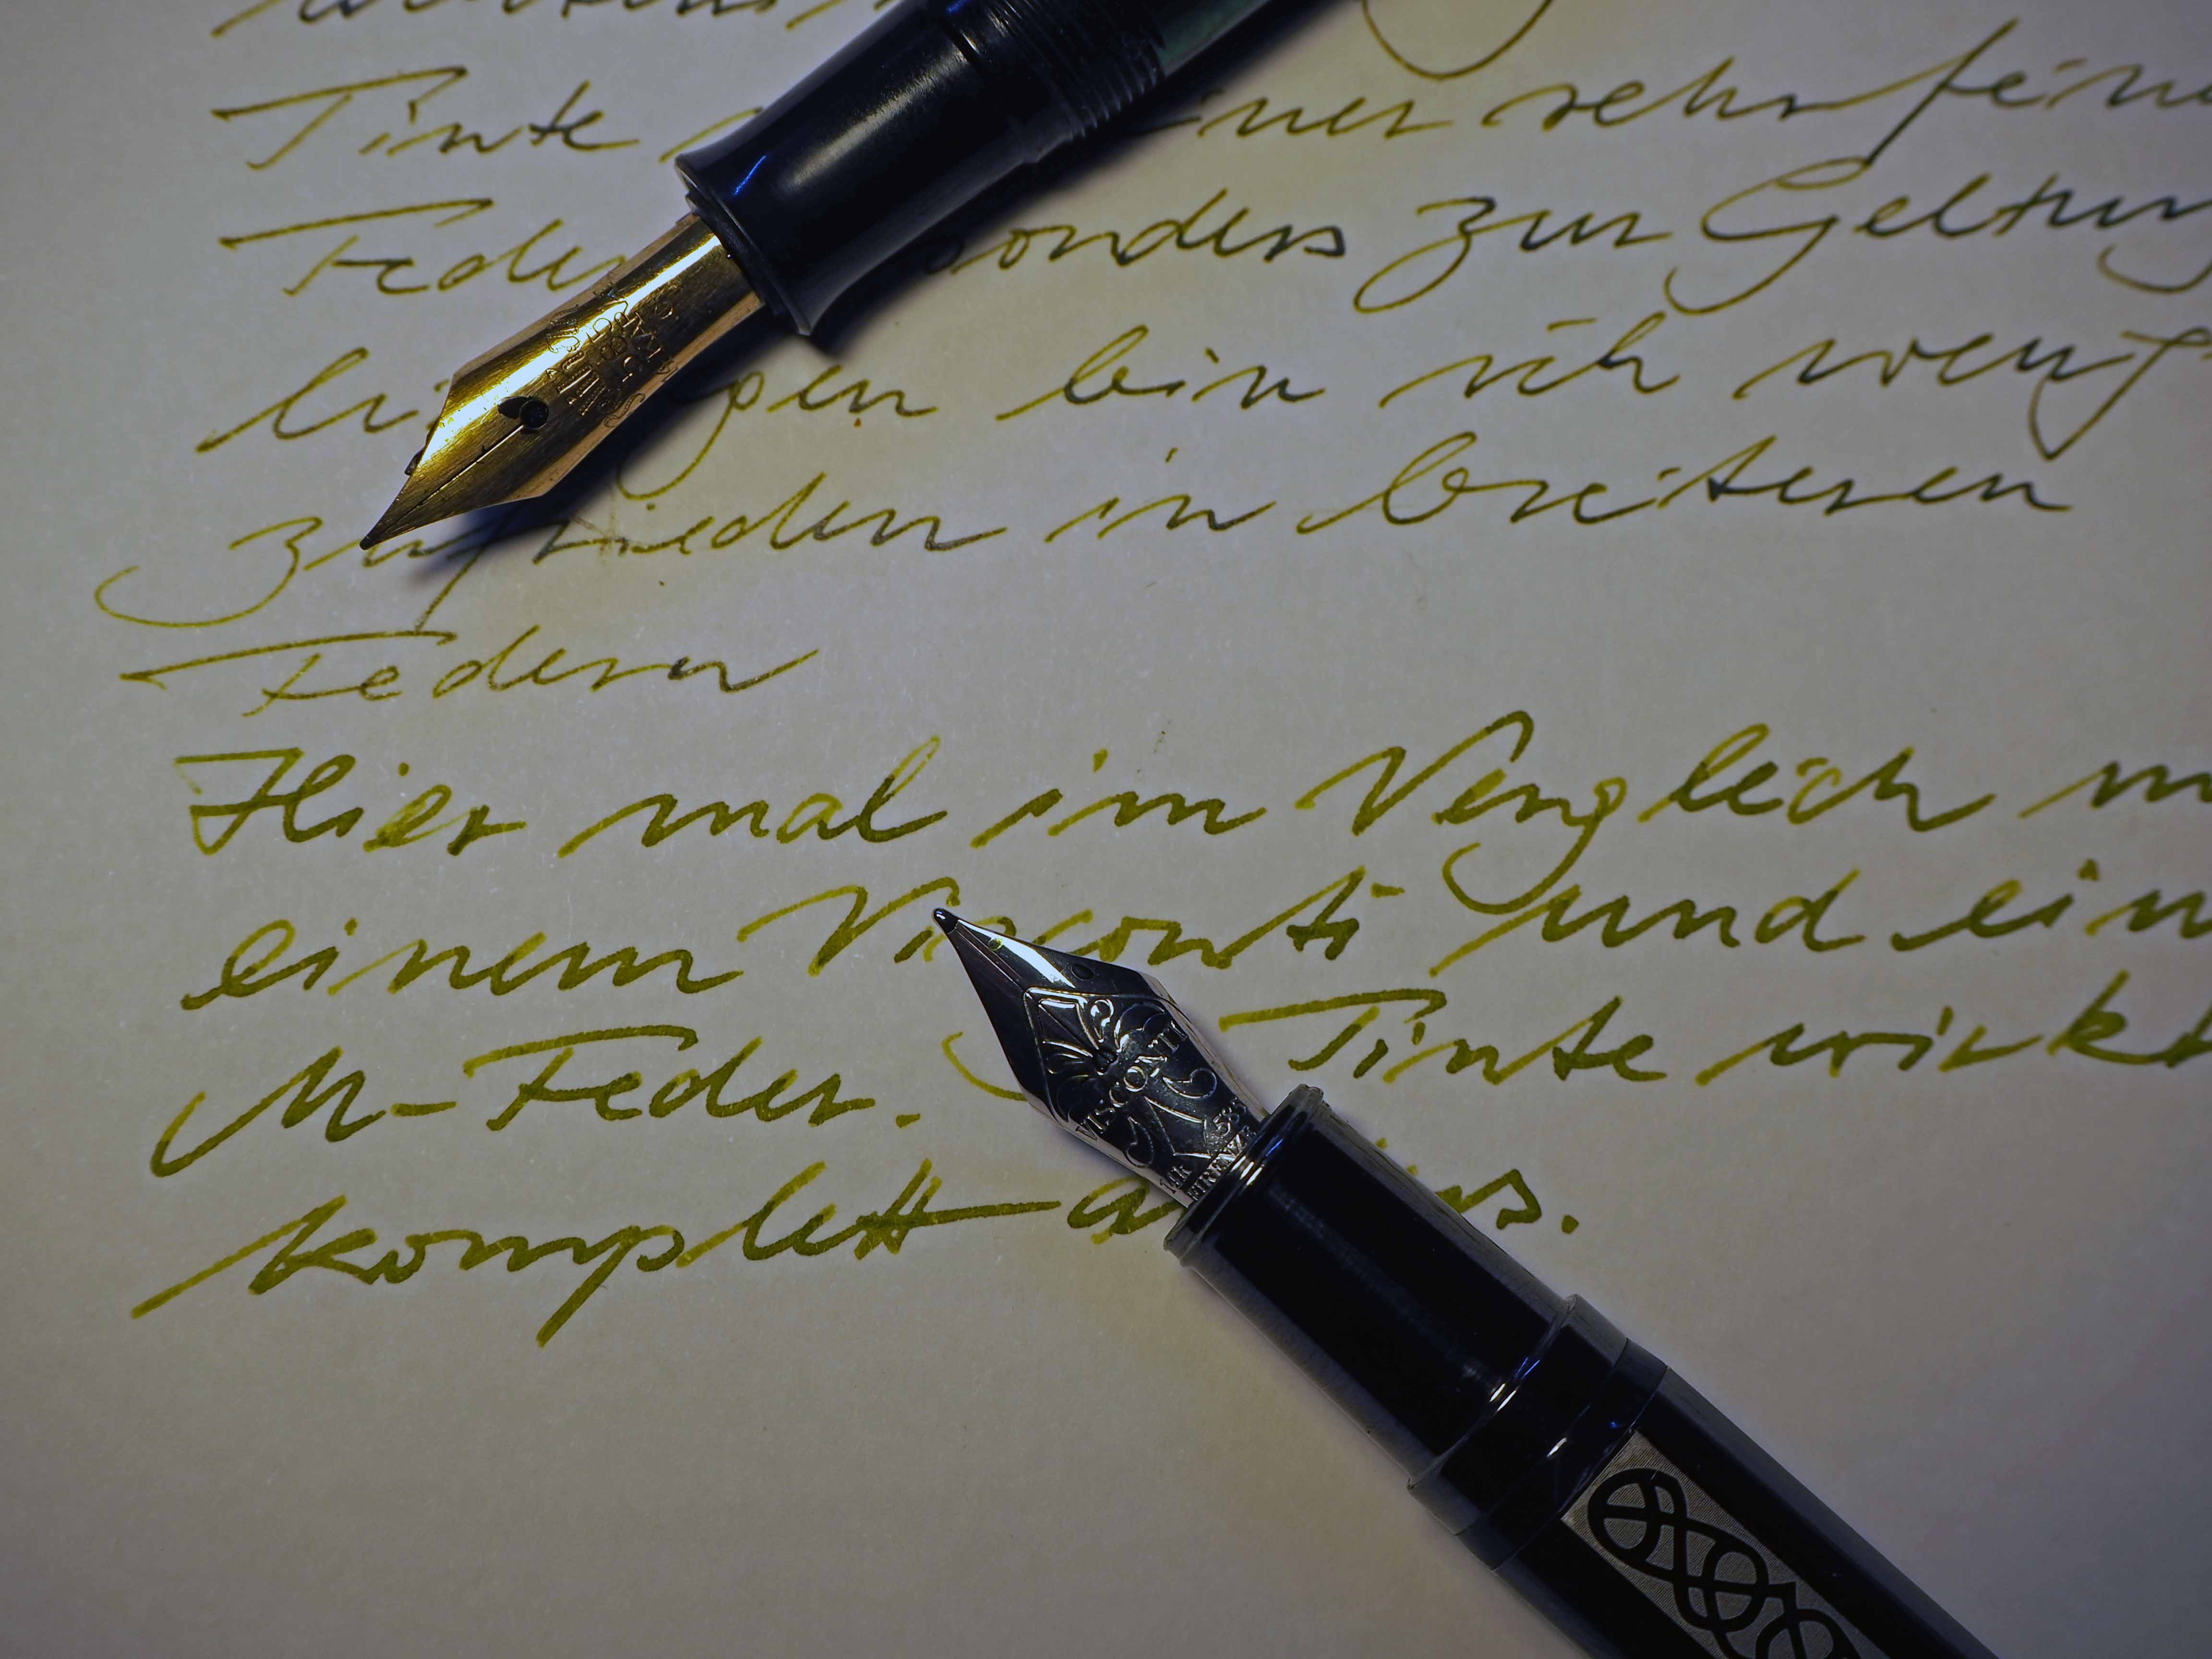 Tinte einer sehr feine
Feder sonders zur Geltung
bin ich weng
Zufrieden in breiteren
Federn
Hier mal im Verglich m
einem Visconti und ein
M-Feder. Tinte wirkt
komplett a s.
VISCONTI
14k 585
FIRENZE